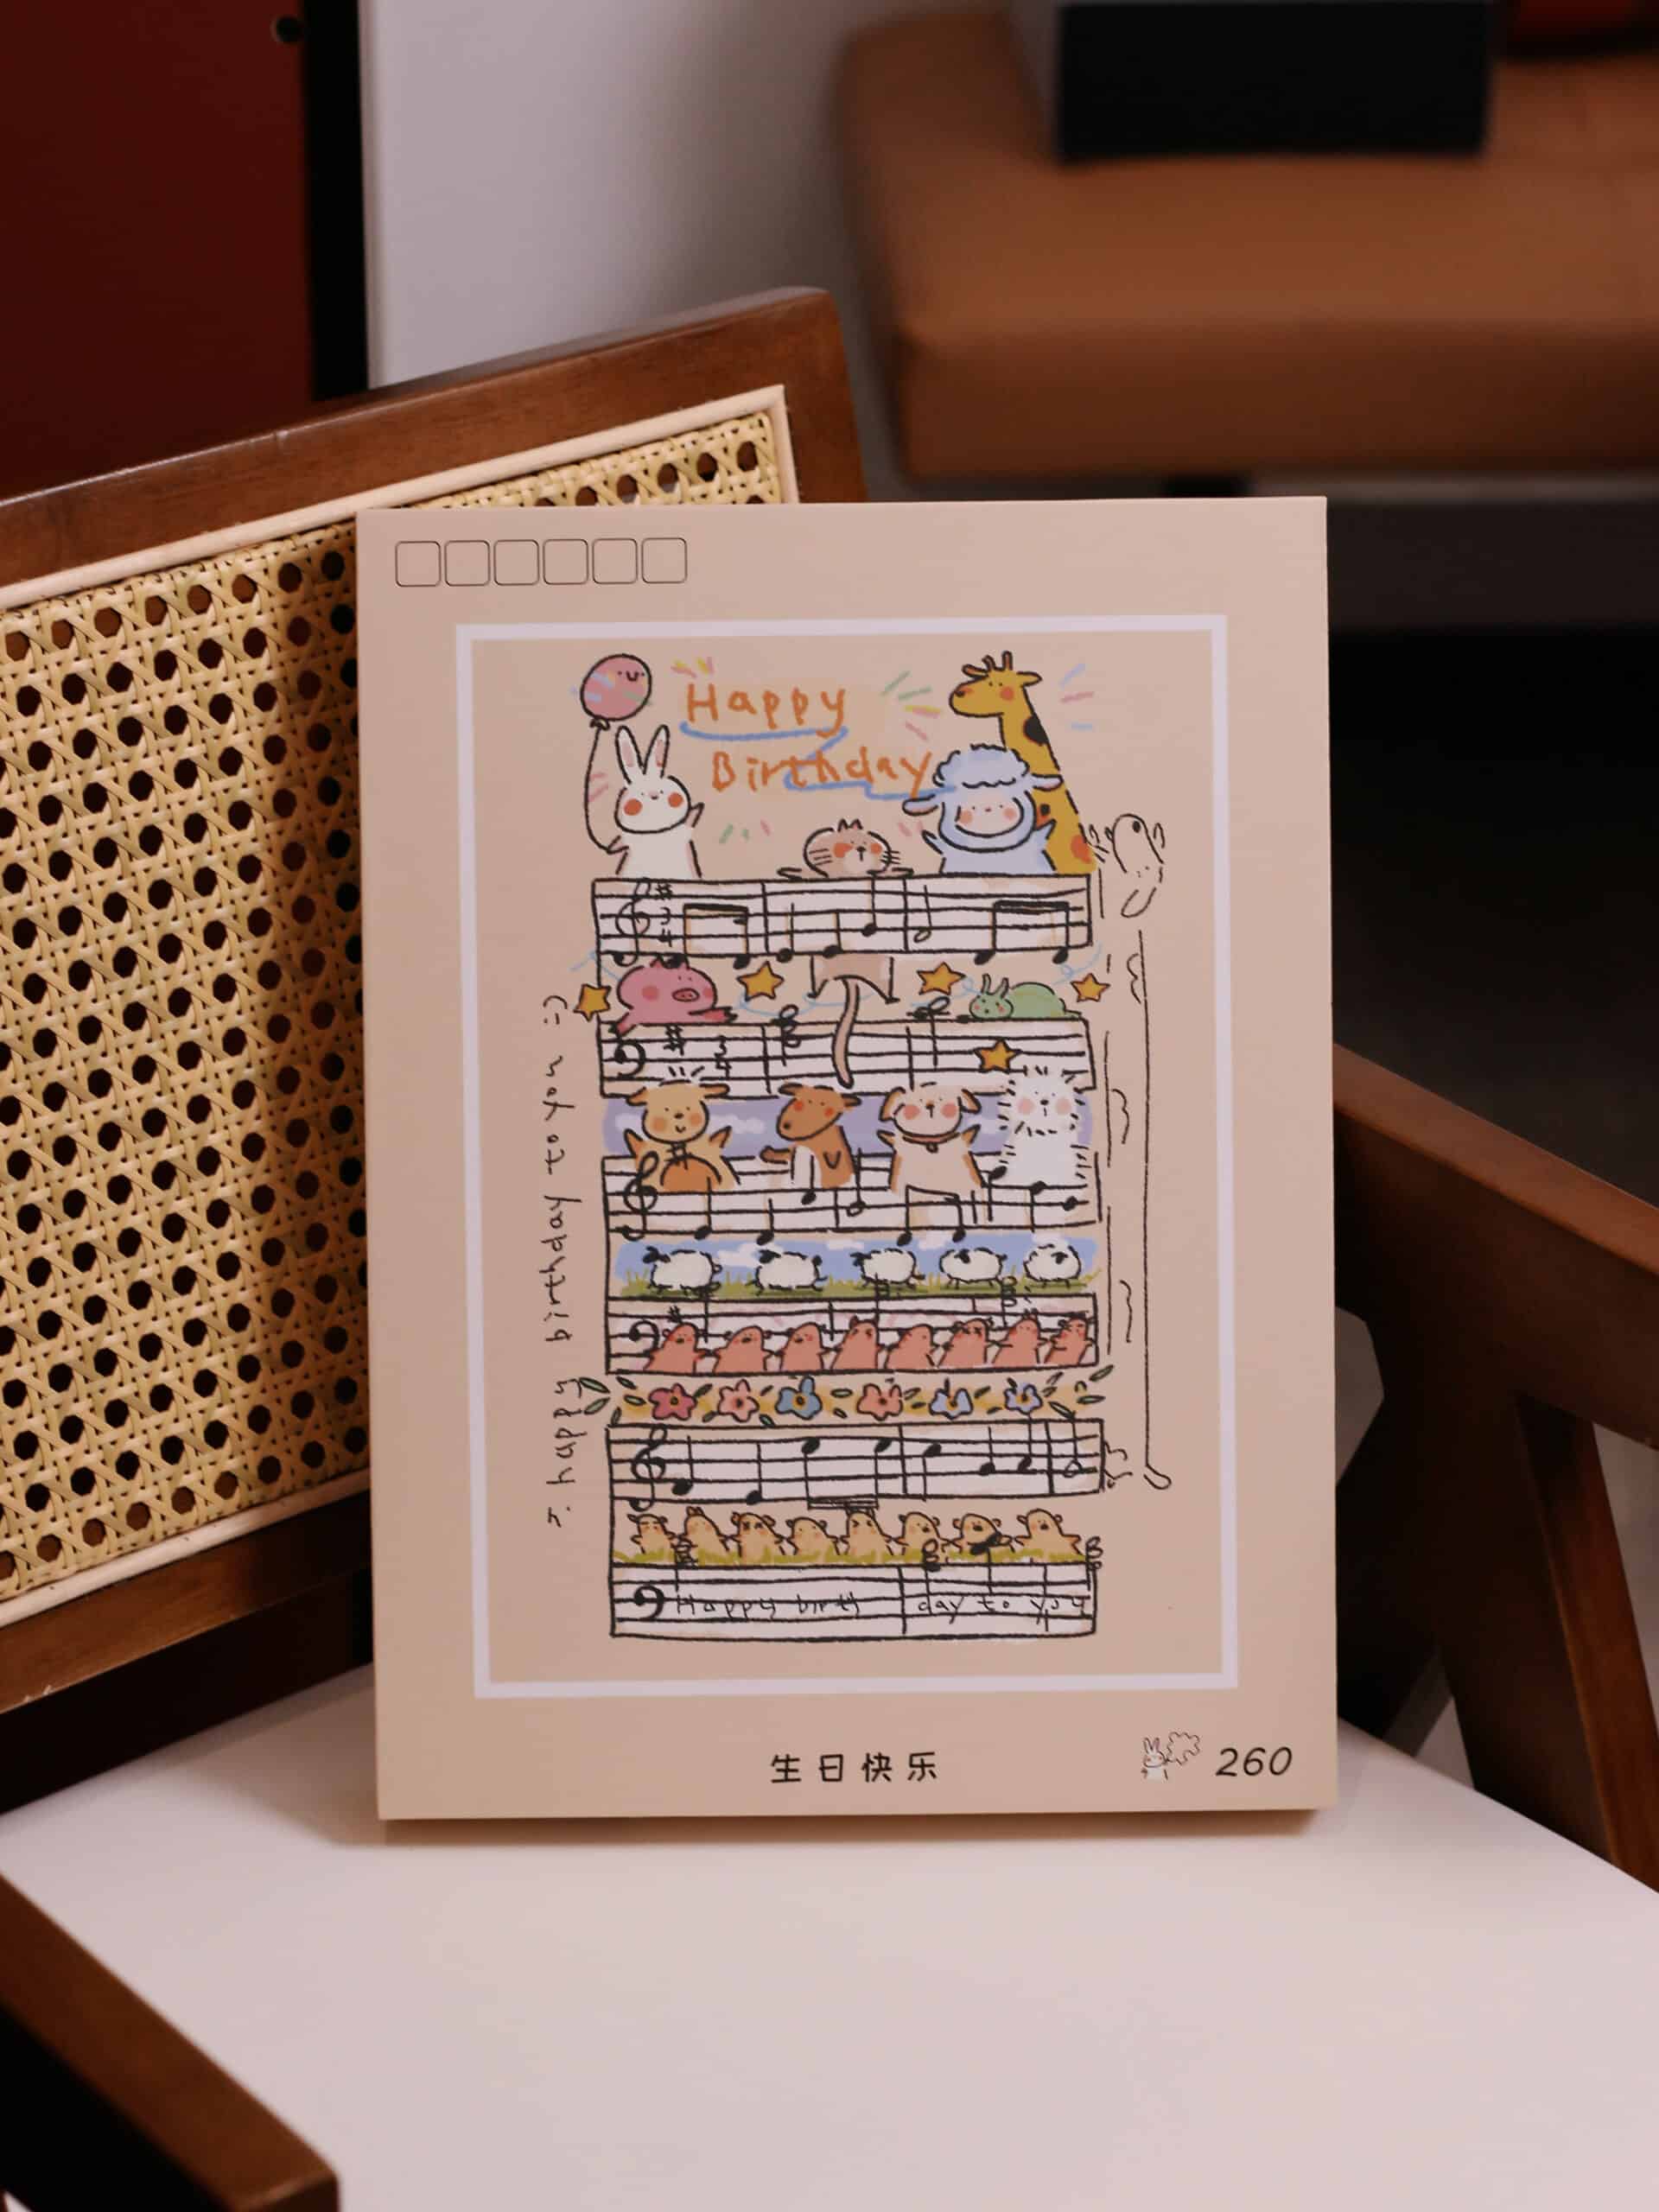 Happy
Birthday
happy birthday to you :)
Happy birth day to you
生日快乐
260